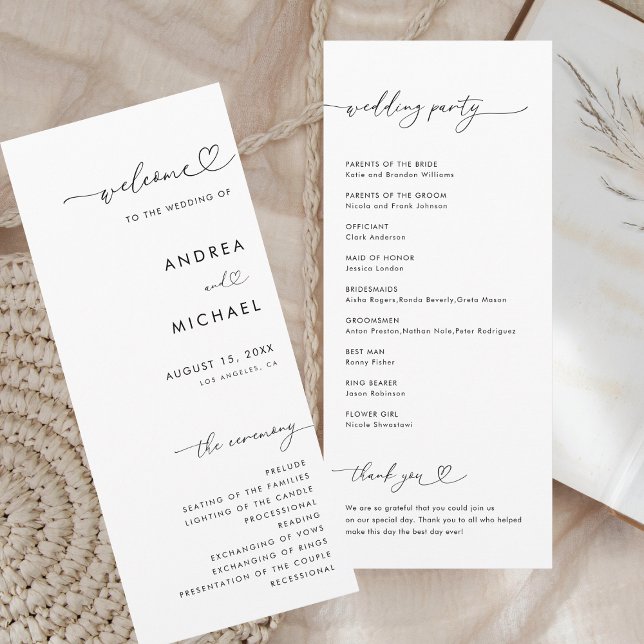 welcome
TO THE WEDDING OF
ANDREA
and
MICHAEL
AUGUST 15, 20XX
LOS ANGELES, CA
the ceremony
PRELUDE
SEATING OF THE FAMILIES
LIGHTING OF THE CANDLE
PROCESSIONAL
READING
EXCHANGING OF VOWS
EXCHANGING OF RINGS
PRESENTATION OF THE COUPLE
RECESSIONAL
wedding party
PARENTS OF THE BRIDE
Katie and Brandon Williams
PARENTS OF THE GROOM
Nicola and Frank Johnson
OFFICIANT
Clark Anderson
MAID OF HONOR
Jessica London
BRIDESMAIDS
Aisha Rogers,Ronda Beverly,Greta Mason
GROOMSMEN
Anton Preston,Nathan Nole,Peter Rodriguez
BEST MAN
Ronny Fisher
RING BEARER
Jason Robinson
FLOWER GIRL
Nicole Shwostawi
thank you
We are so grateful that you could join us
on our special day. Thank you to all who helped
make this day the best day ever!